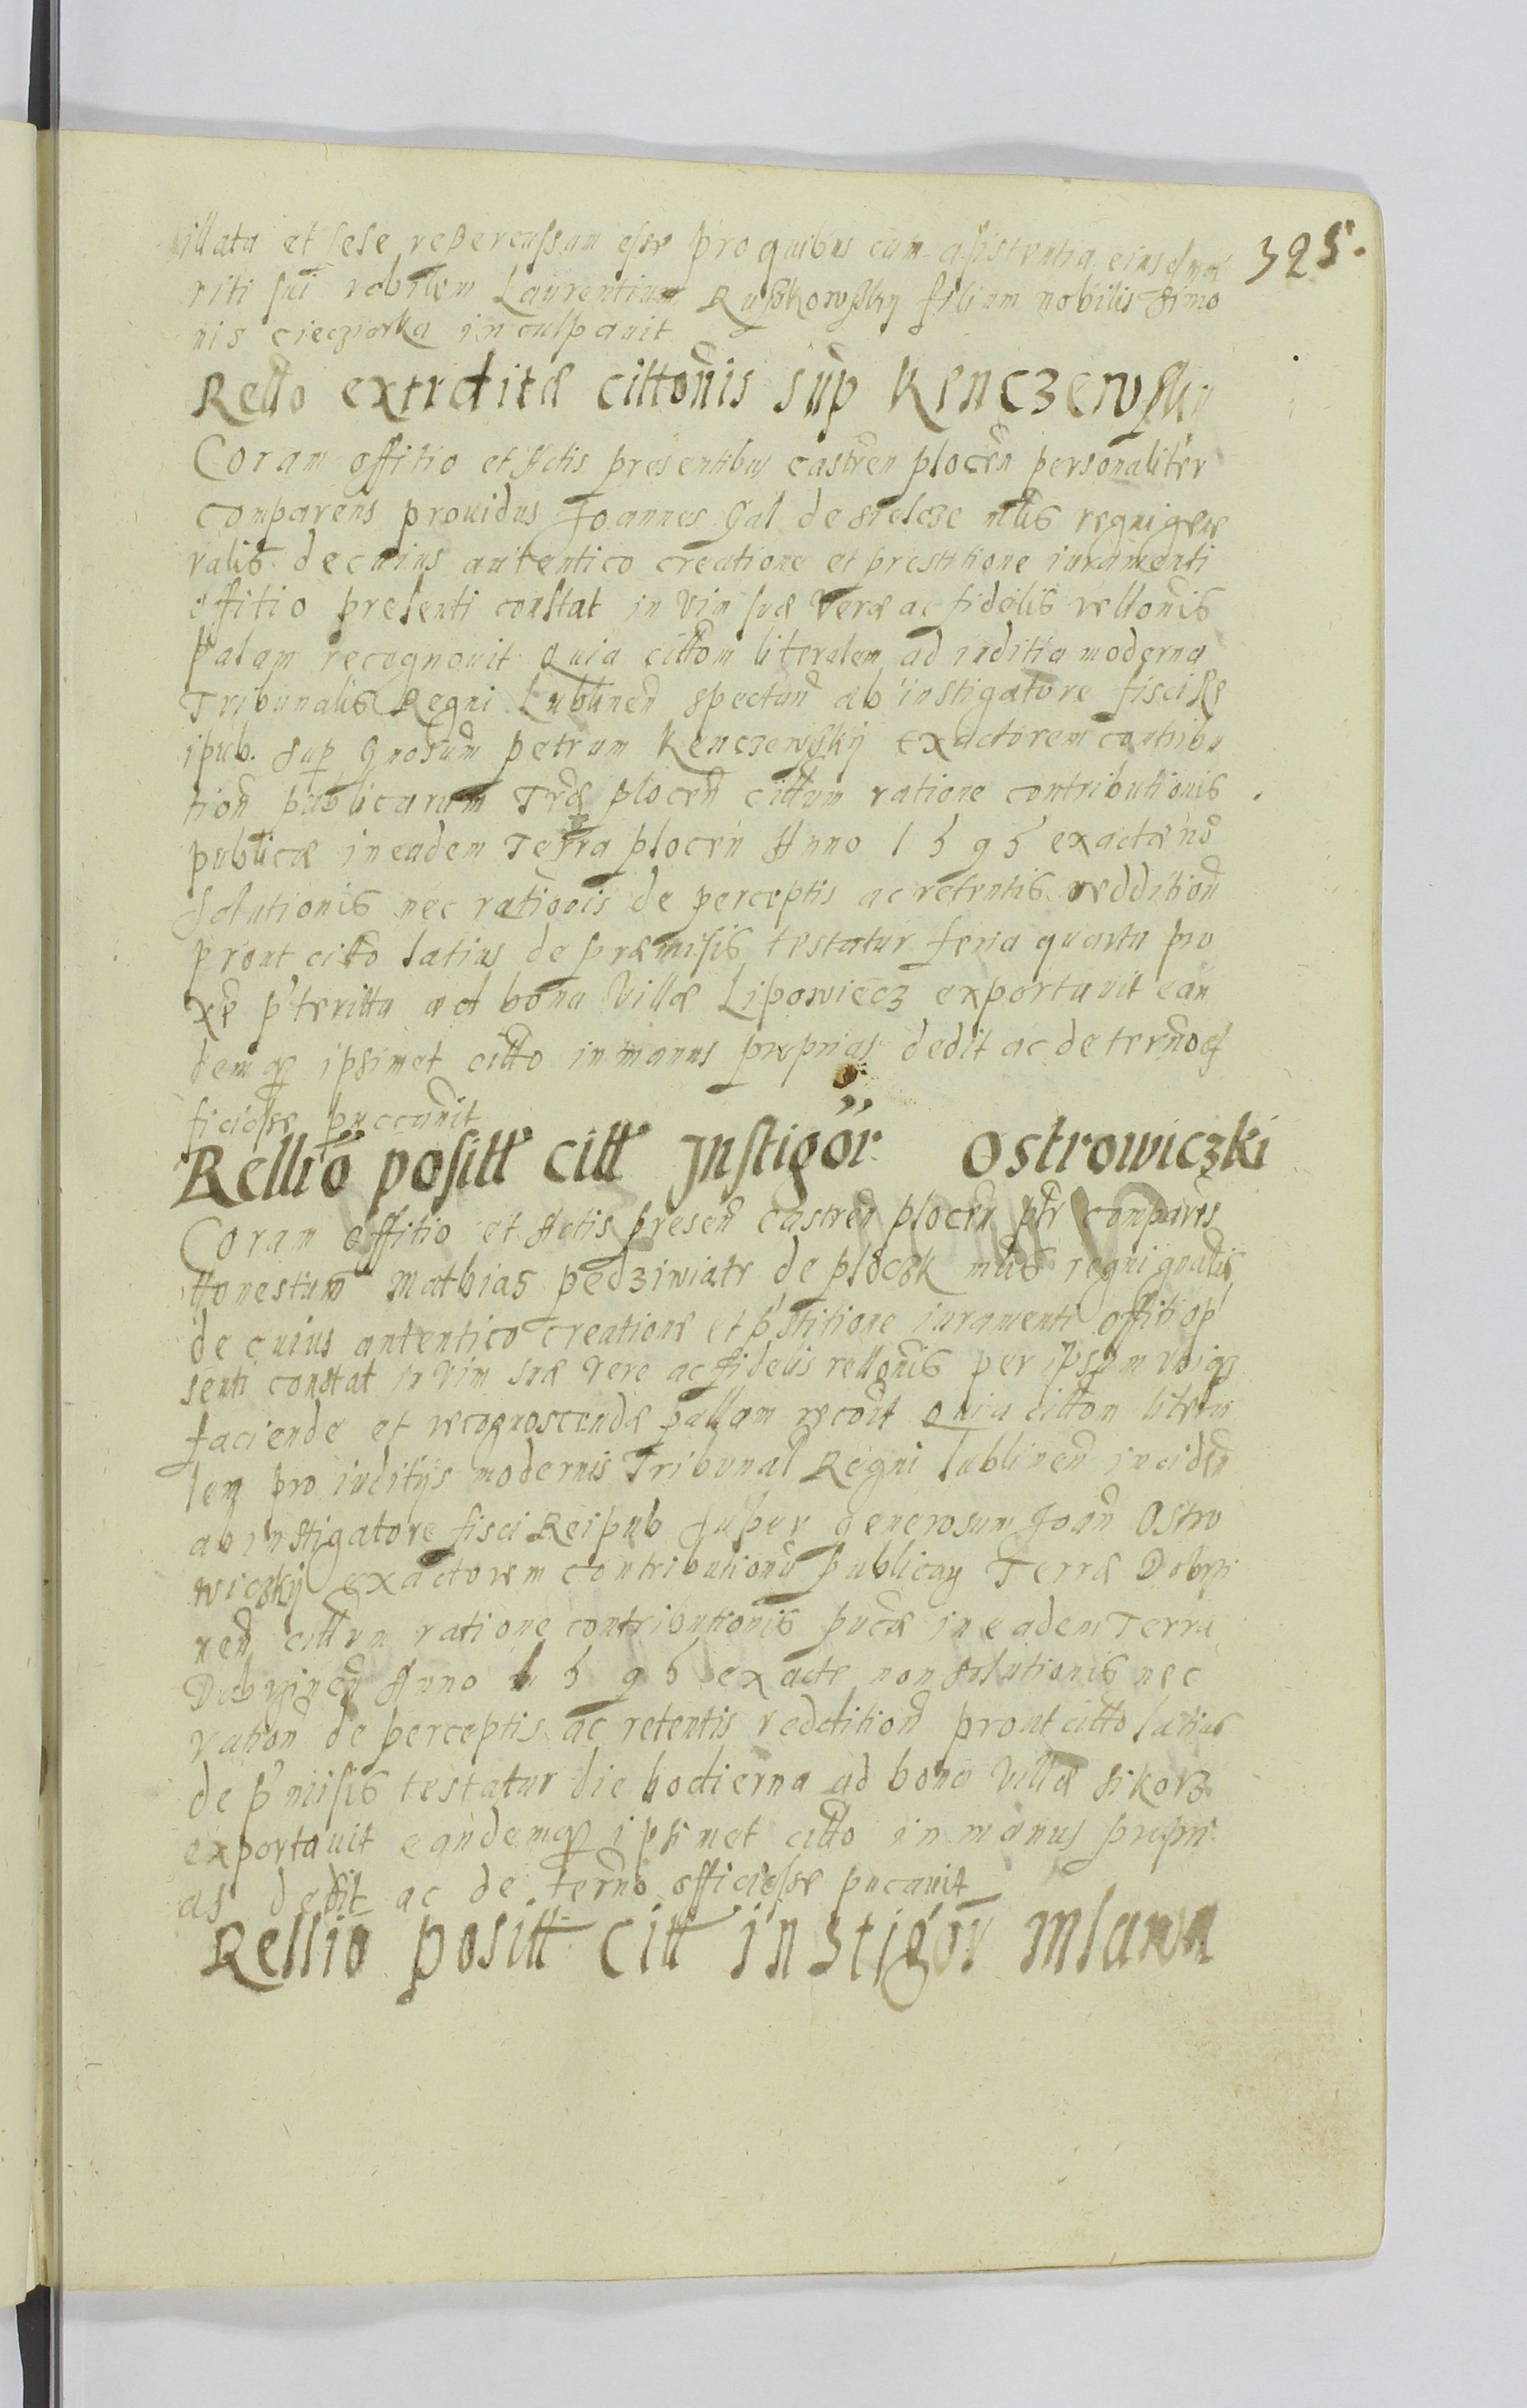 325.
illata et sese repercussum esse pro quibus cum assistentia eiusdem ma
riti sui nobilem Laurentium Ruszkowsky filium nobilis Simo
nis Ciecziorka inculpauit
Rello extraditæ cittonis sup Kenczewsky
Coram offitio et Actis presentibus castren plocen personaliter
comparens prouidus Joannes Gal de Sielcze mlis regni gene
ralis de cuius autentico creatione et prestitione iuramenti
offitio presenti constat in vim suæ veræ ac fidelis rellonis
palam recognouit Quia cittom literalem ad iuditia moderna
Tribunalis Regni Lublinen spectan ab instigatore fisci Re
ipub. sup Gnosum petrum Kenczewsky exactorem contribu
tion publicarum Træ plocen cittum ratione contributionis
publicæ in eadem Terra plocen Anno 1595 exactæ no
solutionis nec rationis de perceptis ac retentis reddition
prout citto latius de præmisis testatur feria quarta pro
xe p'teritta ad bona Villæ Lipowiecz exportauit ean
demq ipsimet citto in manus proprias dedit ac de termo of
ficiosse puccauit
Rellio positt citt Instigor Ostrowiczki
Coram offitio et Actis presen castren plocen ptr compares
Honestum Mathias pedziwiatr de ploczk mlis regni gnalis
de cuius autentico creatione et p'stitione iuramenti offitio p'
senti constat in vim suæ vere ac fidelis rellonis per ipsum
faciende et recognoscendæ pallam recout Quia cittom litera
lem pro iuditijs modernis Tribunal Regni lublinen inciden
ab instigatore fisci Reipub super generosum Joan Ostro
wiczky exactorem contributionu publicar Terræ Dobrzi
nen cittun ratione contributionis pucæ in eadem Terra
Dobrzinen Anno 1595 exacte non solutionis nec
ration de perceptis ac retentis reddition prout citto latius
de p'misis testatur die hodierna ad bona Villæ Sikorz
exportauit eandemq ipsimet citto in manus propri
as dedit ac de termo officiosse pucauit
Rellio positt citt instigor Mlawa